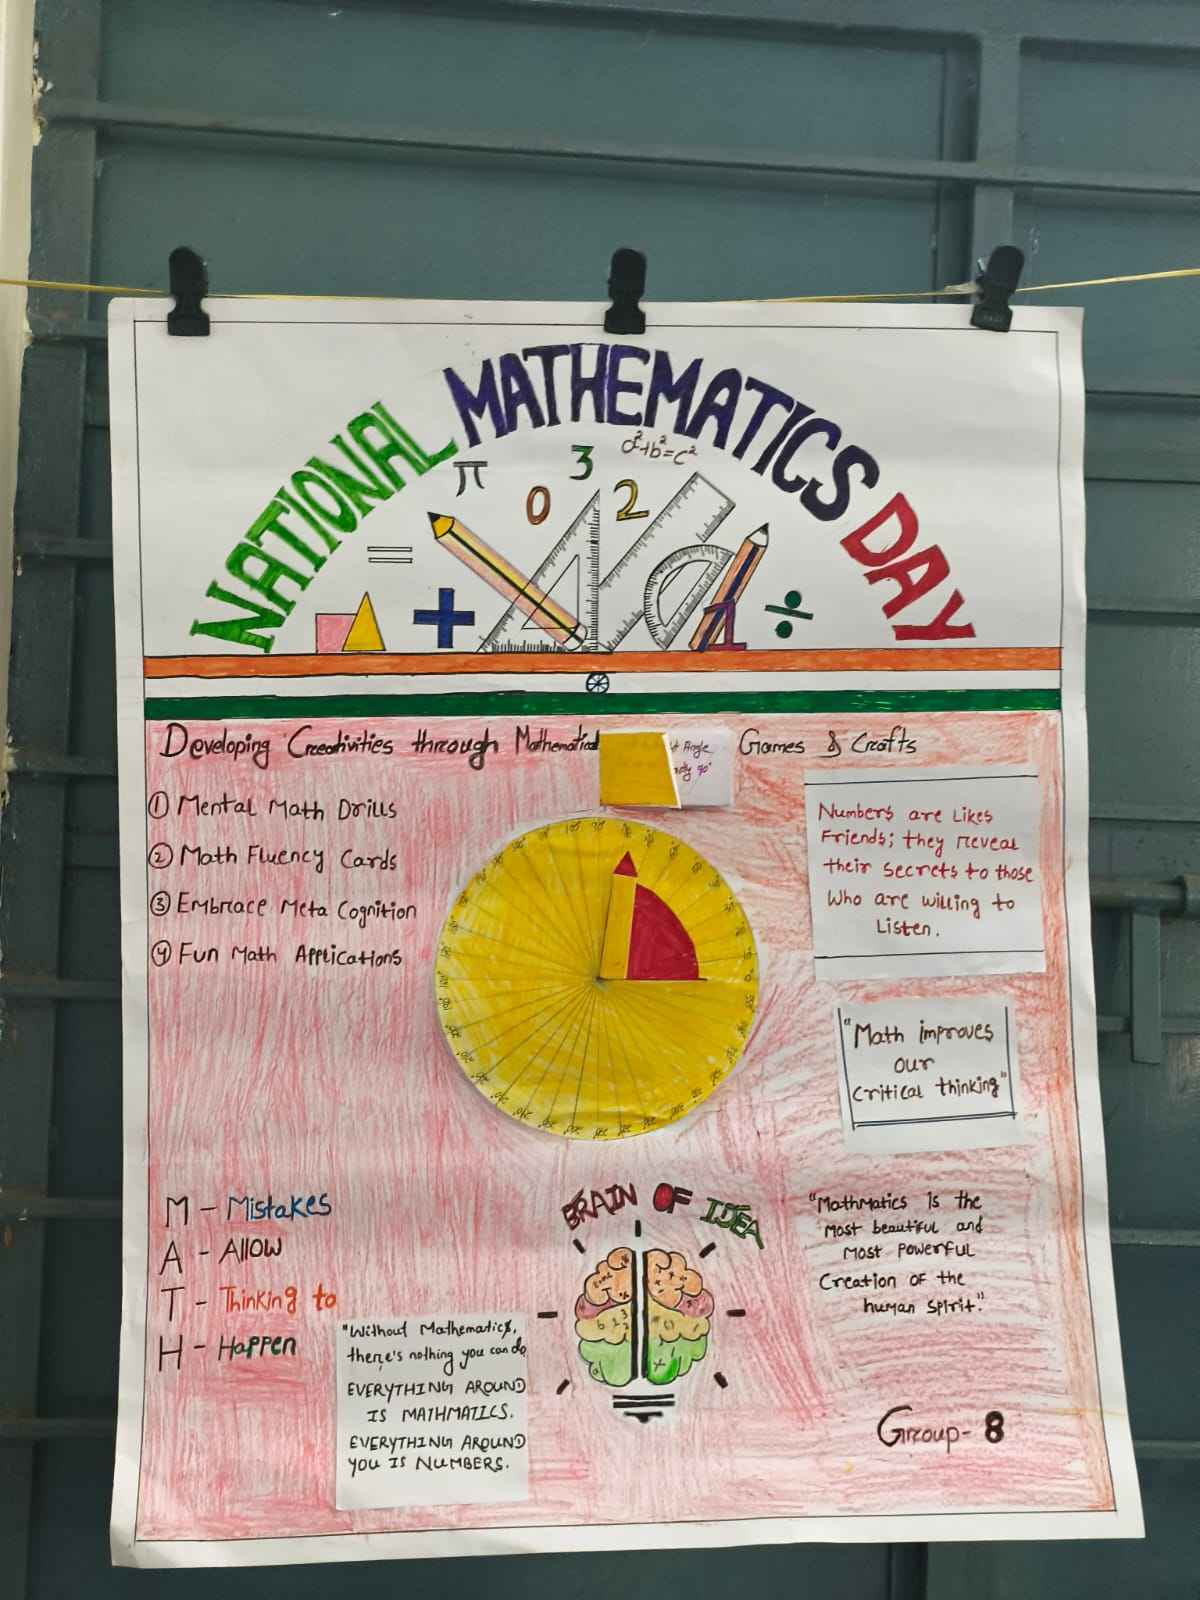 NATIONAL MATHEMATICS DAY
π
3
a²+b²=c²
0
2
=
+
1
÷
Developing Creativities through Mathematical Games & Crafts
t Angle
90°
① Mental Math Drills
② Math Fluency Cards
③ Embrace Meta Cognition
④ Fun Math Applications
Numbers are Likes
Friends; they reveal
their secrets to those
who are willing to
Listen.
"Math improves
our
critical thinking"
M - Mistakes
A - Allow
T - Thinking to
H - Happen
"Without Mathematics,
there's nothing you can do.
EVERYTHING AROUND
IS MATHMATICS.
EVERYTHING AROUND
YOU IS NUMBERS.
BRAIN OF IDEA
"Mathmatics is the
most beautiful and
most powerful
Creation of the
human spirit."
Group- 8